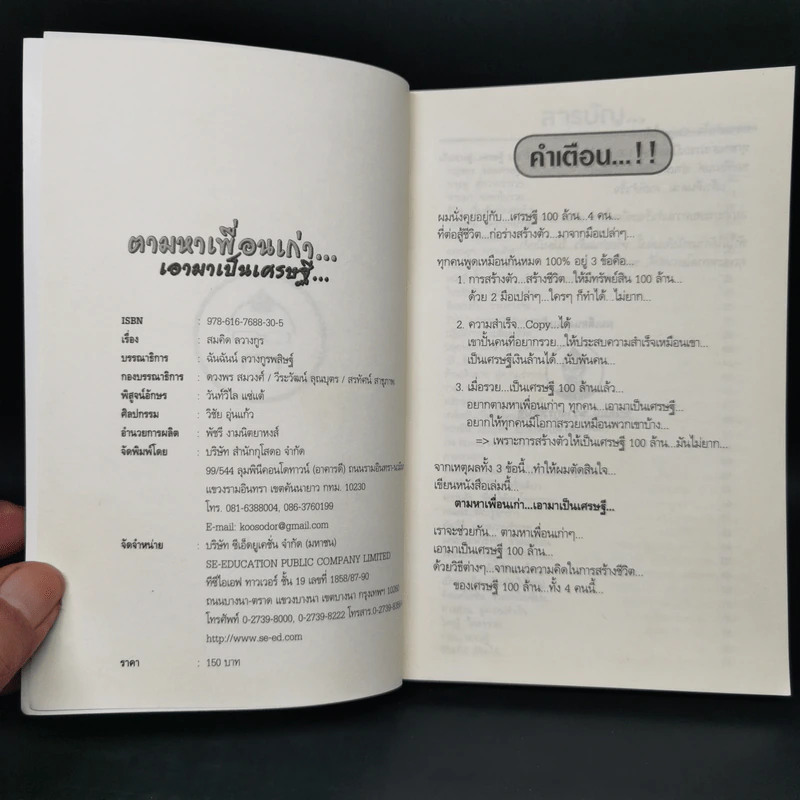 ตามหาเพื่อนเก่า...
เอามาเป็นเศรษฐี...
ISBN : 978-616-7688-30-5
เรื่อง : สมคิด ลวางกูร
บรรณาธิการ : ฉันฉันน์ ลวางกูรพสิษฐ์
กองบรรณาธิการ : ดวงพร สมวงศ์ / วีระวัฒน์ ลุณบุตร / สรทัศน์ สาธุภาพ
พิสูจน์อักษร : วันทิวิไล แซ่แต้
ศิลปกรรม : วิชัย อุ่นแก้ว
อำนวยการผลิต : พัชรี งามนิตยาหงส์
จัดพิมพ์โดย : บริษัท สำนักกุโสดอ จำกัด
99/544 ลุมพินีคอนโดทาวน์ (อาคารดี) ถนนรามอินทรา-นวมินทร์
แขวงรามอินทรา เขตคันนายาว กทม. 10230
โทร. 081-6388004, 086-3760199
E-mail: koosodor@gmail.com
จัดจำหน่าย : บริษัท ซีเอ็ดยูเคชั่น จำกัด (มหาชน)
SE-EDUCATION PUBLIC COMPANY LIMITED
ทีซีไอเอฟ ทาวเวอร์ ชั้น 19 เลขที่ 1858/87-90
ถนนบางนา-ตราด แขวงบางนา เขตบางนา กรุงเทพฯ 10260
โทรศัพท์ 0-2739-8000, 0-2739-8222 โทรสาร.
http://www.se-ed.com
ราคา : 150 บาท
คำเตือน...!!
ผมนั่งคุยอยู่กับ...เศรษฐี 100 ล้าน...4 คน...
ที่ต่อสู้ชีวิต...ก่อร่างสร้างตัว...มาจากมือเปล่าๆ...
ทุกคนพูดเหมือนกันหมด 100% อยู่ 3 ข้อคือ...
1. การสร้างตัว...สร้างชีวิต...ให้มีทรัพย์สิน 100 ล้าน...
ด้วย 2 มือเปล่าๆ...ใครๆ ก็ทำได้...ไม่ยาก...
2. ความสำเร็จ...Copy...ได้
เขาปั้นคนที่อยากรวย...ให้ประสบความสำเร็จเหมือนเขา...
เป็นเศรษฐีเงินล้านได้...นับพันคน...
3. เมื่อรวย...เป็นเศรษฐี 100 ล้านแล้ว...
อยากตามหาเพื่อนเก่าๆ ทุกคน...เอามาเป็นเศรษฐี...
อยากให้ทุกคนมีโอกาสรวยเหมือนพวกเขาบ้าง...
=> เพราะการสร้างตัวให้เป็นเศรษฐี 100 ล้าน...มันไม่ยาก...
จากเหตุผลทั้ง 3 ข้อนี้...ทำให้ผมตัดสินใจ...
เขียนหนังสือเล่มนี้...
ตามหาเพื่อนเก่า...เอามาเป็นเศรษฐี...
เราจะช่วยกัน... ตามหาเพื่อนเก่าๆ...
เอามาเป็นเศรษฐี 100 ล้าน...
ด้วยวิธีต่างๆ...จากแนวความคิดในการสร้างชีวิต...
ของเศรษฐี 100 ล้าน...ทั้ง 4 คนนี้...